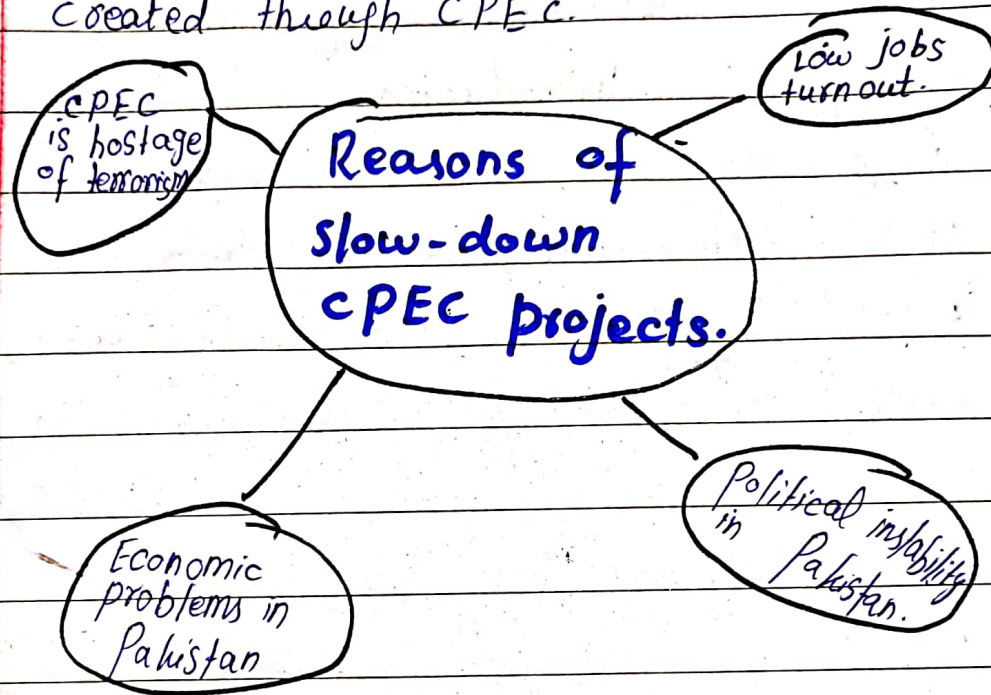 Created through CPEC.
CPEC
is hostage
of terrorism
Low jobs
turnout.
Reasons of
slow-down
CPEC projects.
Economic
problems in
Pakistan
Political instability
in Pakistan.